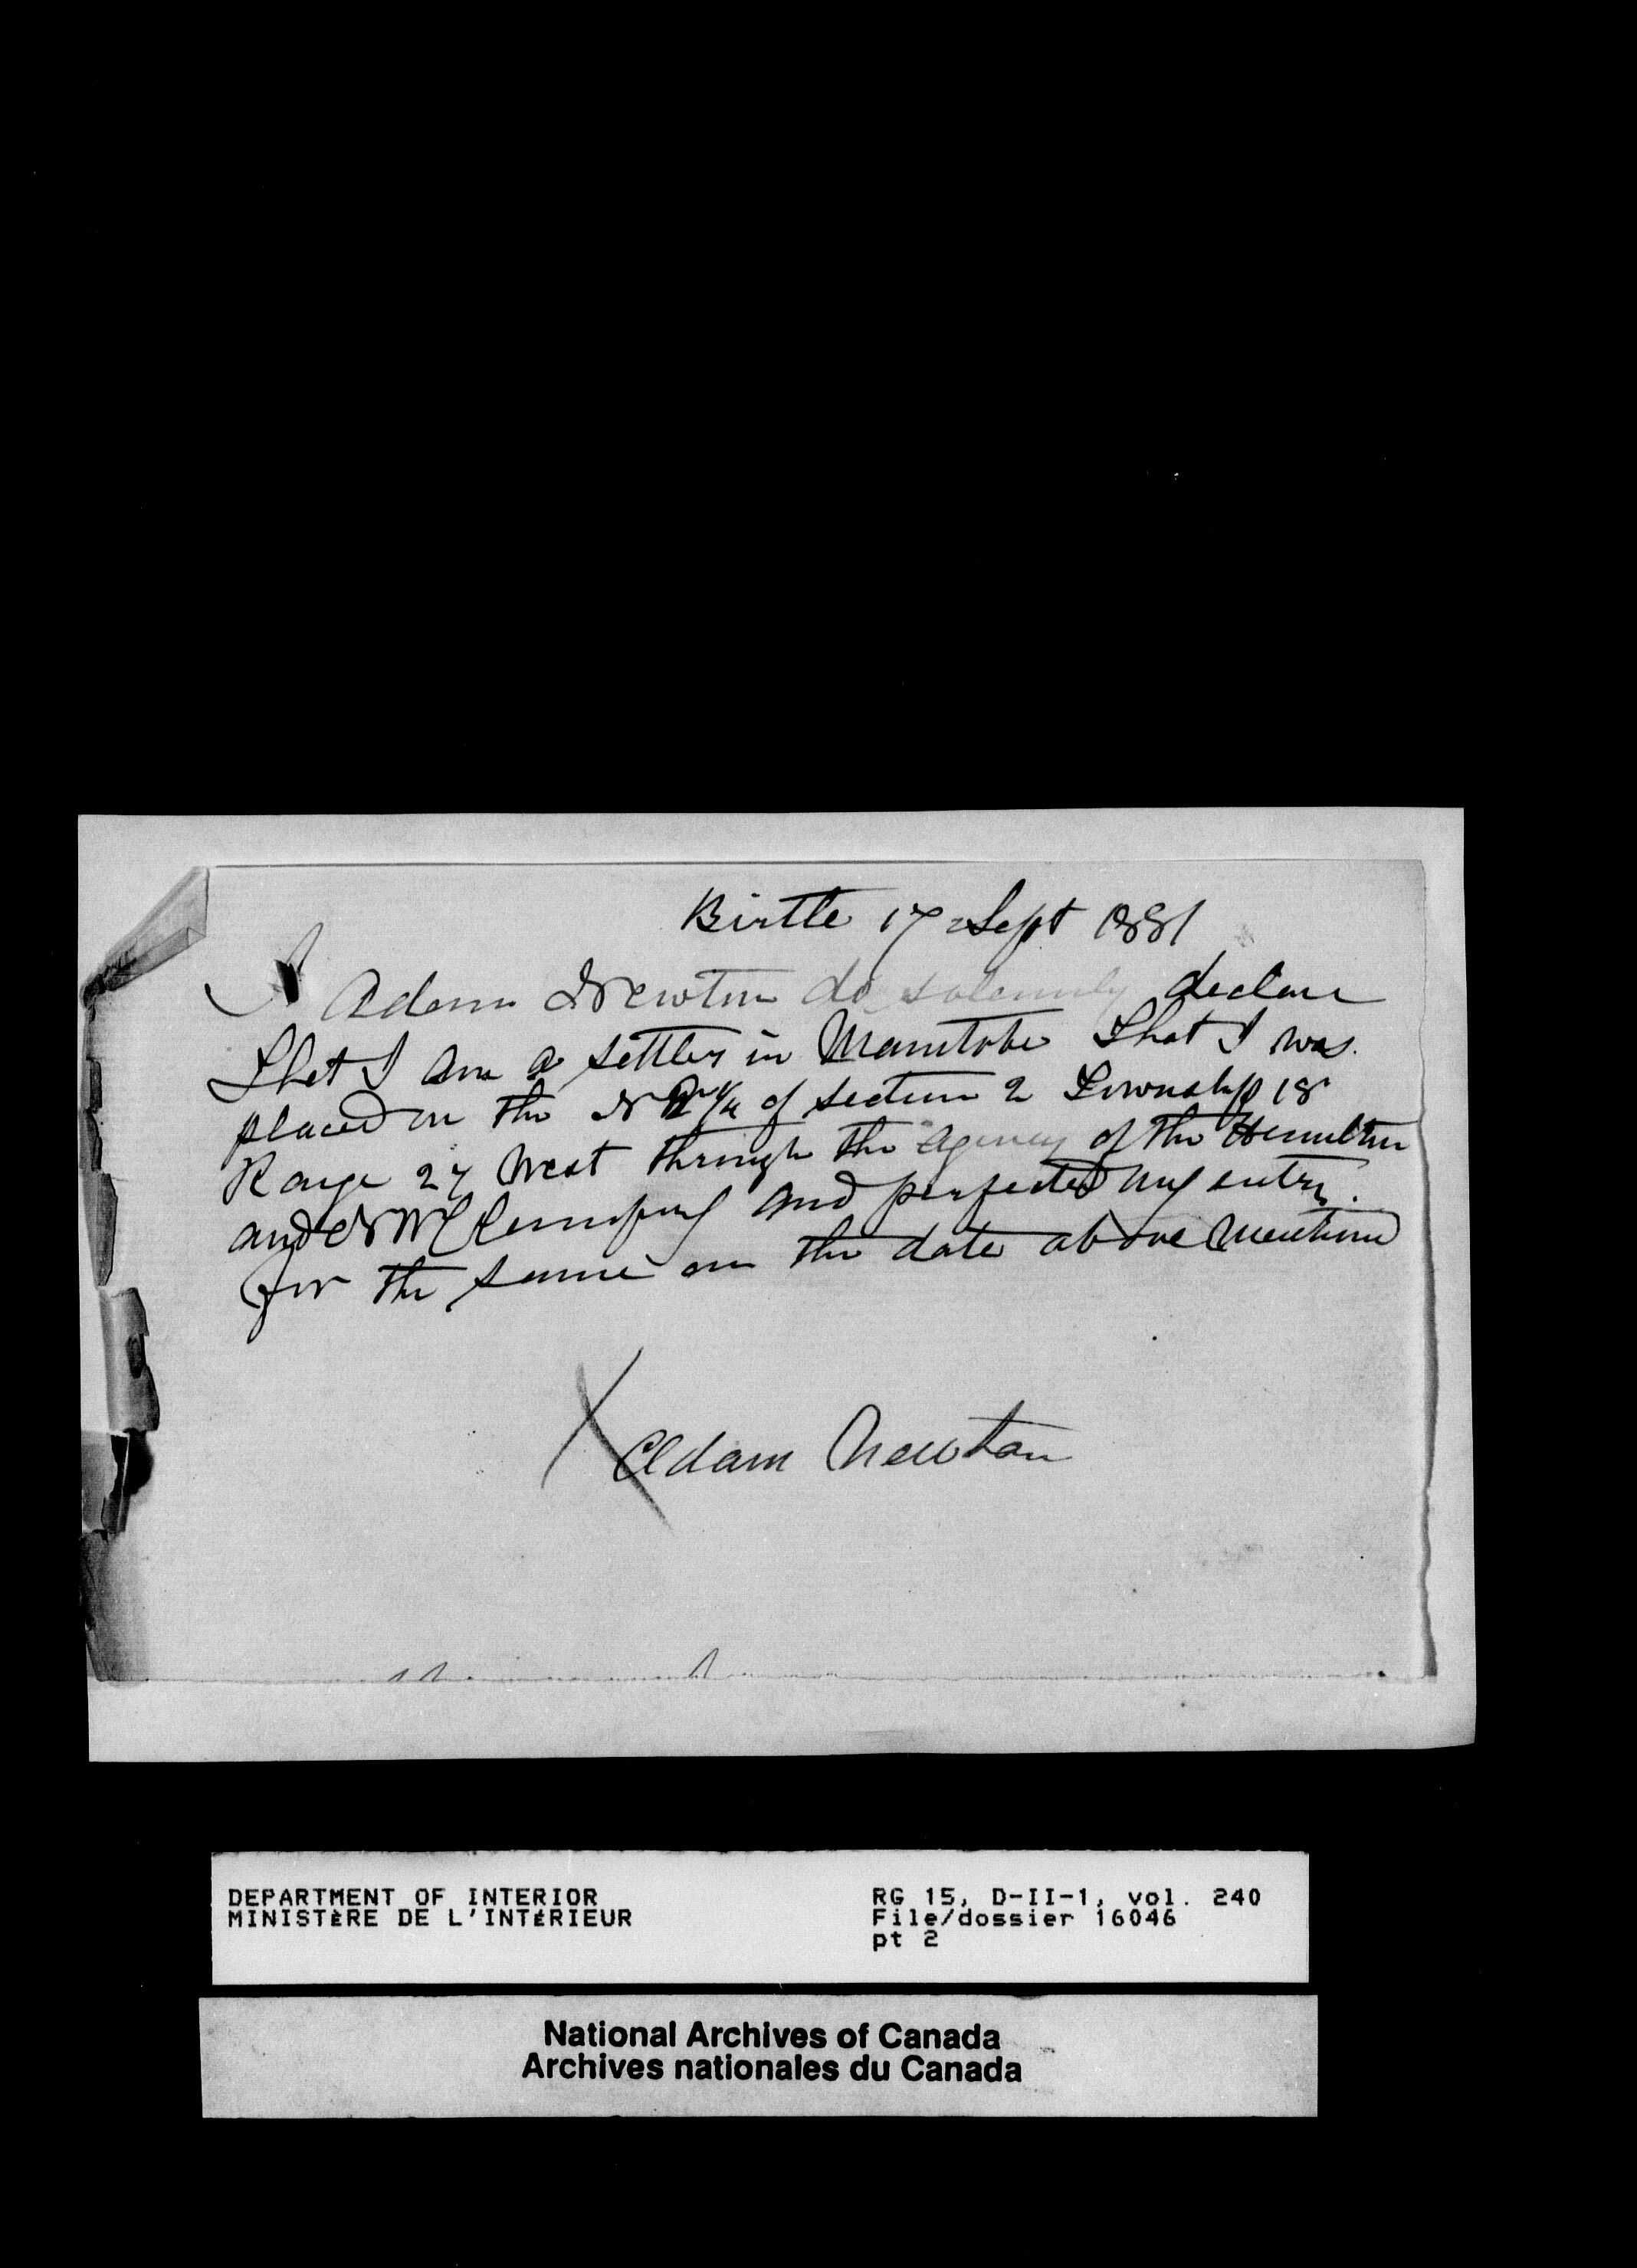 Birtle 17 Sept 1881
I Adam Newton do solemnly declare
That I am a settler in Manitoba That I was
placed on the N 1/4 of section 2 Township 18
Range 27 West through the agency of the Hamilton
and N W Company and perfected my entry
for the same on the date above mentioned
X Adam Newton
DEPARTMENT OF INTERIOR
MINISTÈRE DE L'INTÉRIEUR
RG 15, D-II-1, vol. 240
File/dossier 16046
pt 2
National Archives of Canada
Archives nationales du Canada